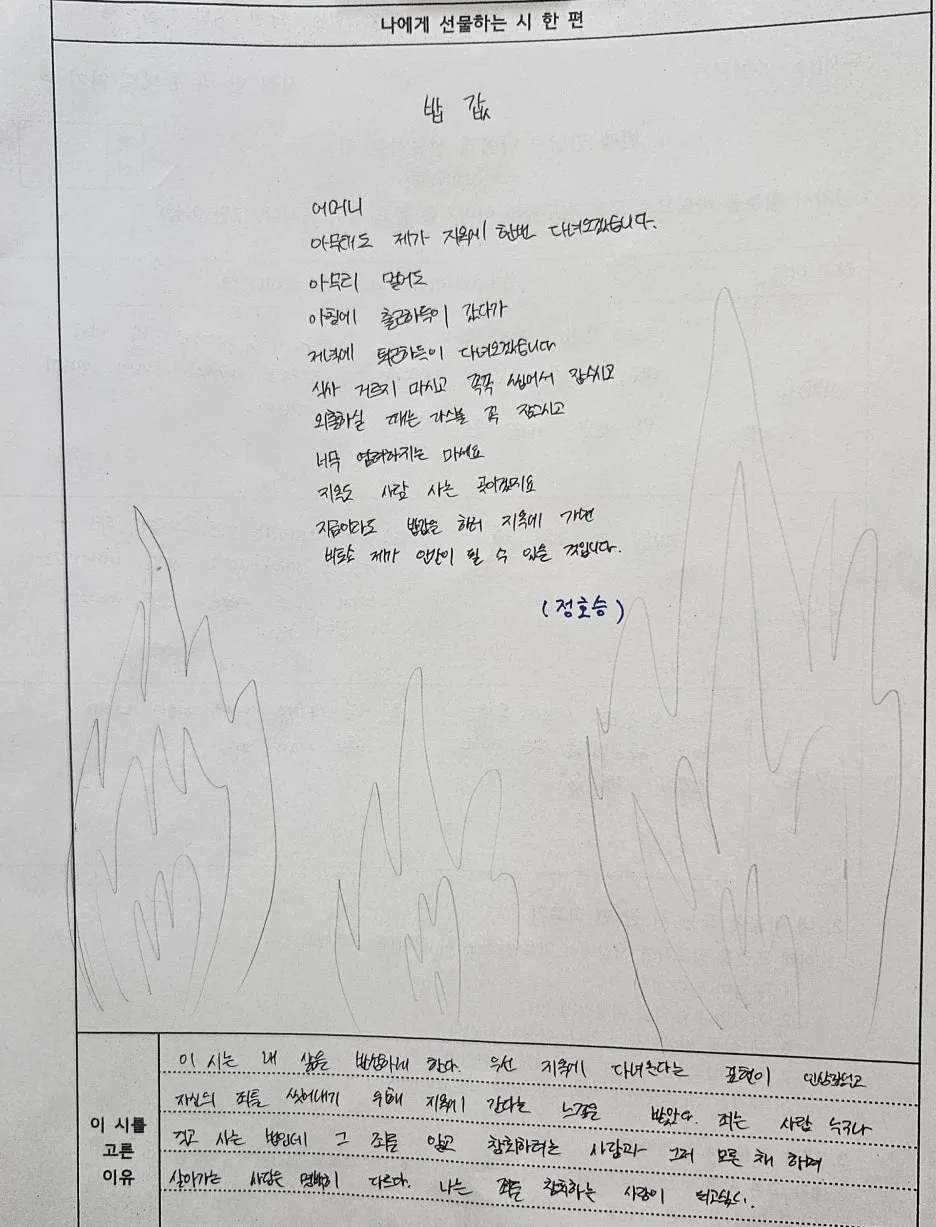 나에게 선물하는 시 한 편
밥 값
어머니
아무래도 제가 지옥에 한번 다녀오겠습니다.
아무리 멀어도
아침에 출근하듯이 갔다가
저녁에 퇴근하듯이 다녀오겠습니다
식사 거르지 마시고 꼭꼭 씹어서 잡수시고
외출하실 때는 가스불 꼭 잠그시고
너무 염려하지는 마세요
지옥도 사람 사는 곳이겠지요
지금이라도 밥값을 하러 지옥에 가면
비로소 제가 인간이 될 수 있을 것입니다.
(정호승)
이 시를 고른 이유
이 시는 내 삶을 반성하게 한다. 우선 지옥에 다녀온다는 표현이 인상깊었고
자신의 죄를 씻어내기 위해 지옥에 간다는 느낌을 받았다. 죄는 사람 누구나
갖고 사는 법인데 그 죄를 알고 참회하려는 사람과 그저 모른 채 하며
살아가는 사람은 명백히 다르다. 나는 죄를 참회하는 사람이 되고싶다.